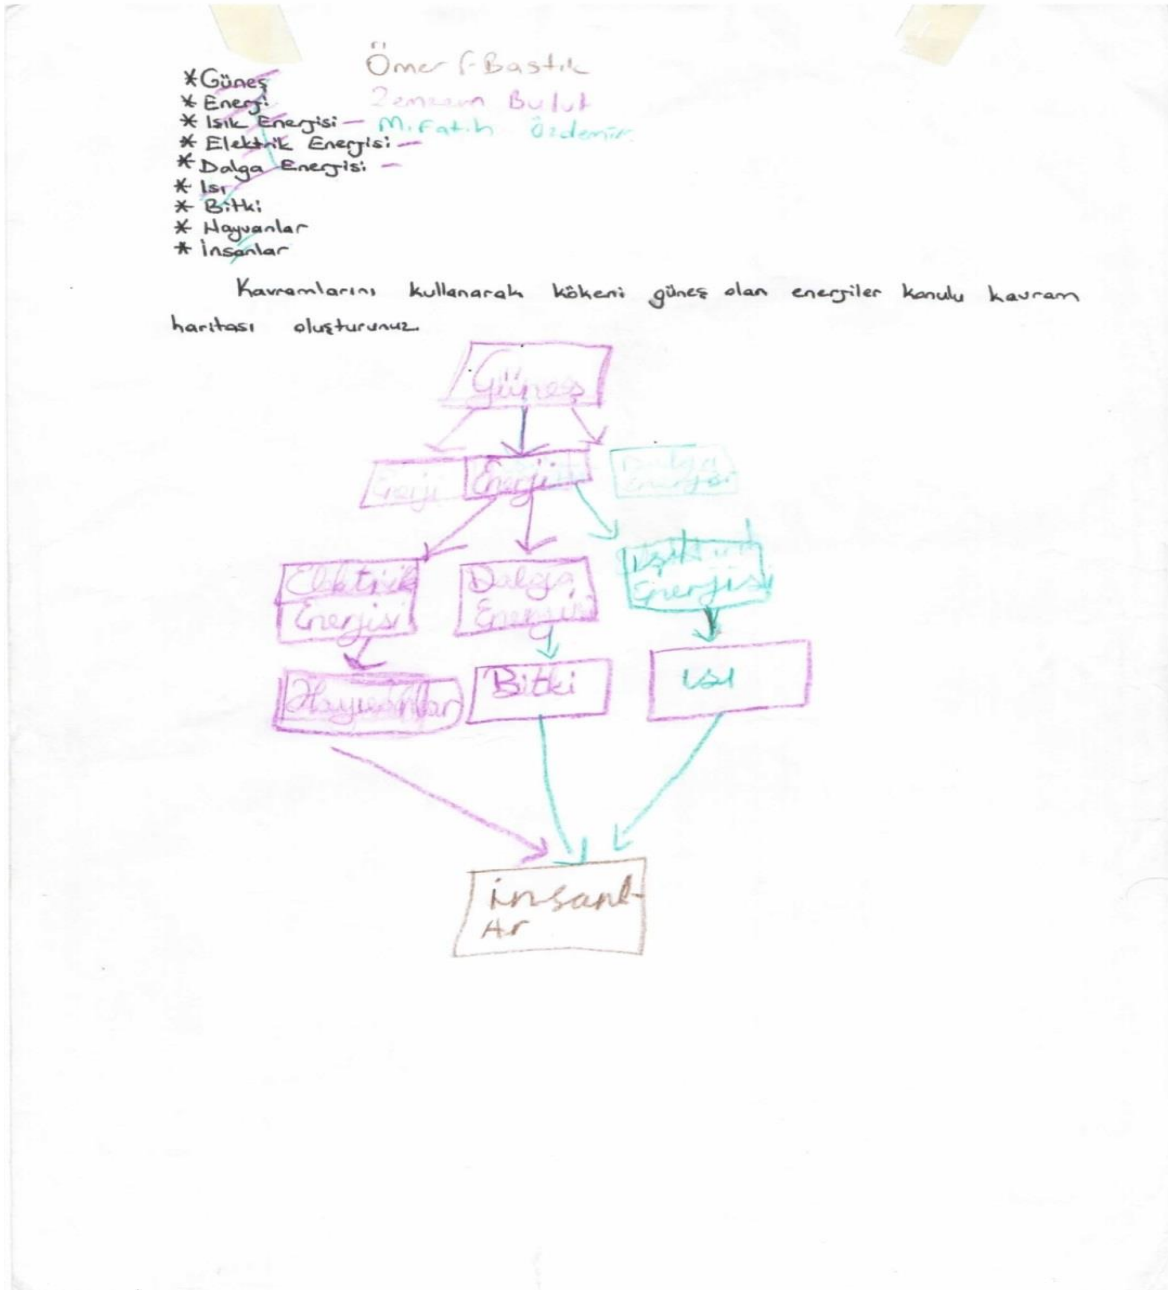 Ömer F. Bastık
* Güneş
* Enerji
Bulut
* Işık Enerjisi
M. Fatih Özdemir
* Elektrik Enerjisi
* Dalga Enerjisi
* Isı
* Bitki
* Hayvanlar
* İnsanlar
Kavramlarını kullanarak kökeni güneş olan enerjiler konulu kavram
haritası oluşturunuz.
Güneş
Enerji Enerji Dalga
Enerjisi
Elektrik Dalga Işık
Enerjisi Enerjisi Enerjisi
Hayvanlar Bitki ısı
insanl-
Ar